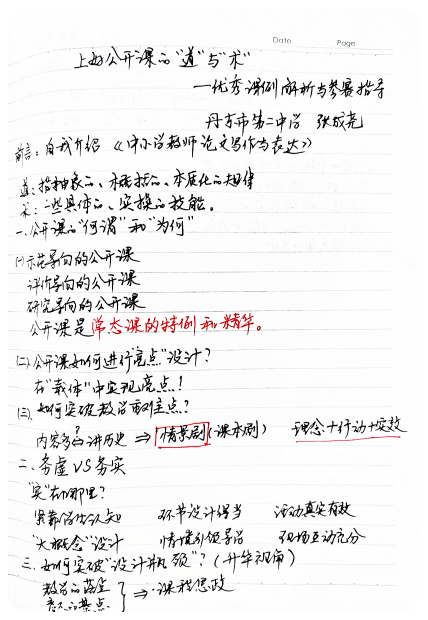 Date Page
上好公开课的"道"与"术"
—优秀课例解析与参赛指导
丹东市第二中学 张成尧
前言：自我介绍 《中小学教师论文写作与表达》
道：指抽象的、本质的、本质化的规律
术：一些具体的、实操的技能。
一、公开课的"何谓"和"为何"
(一)示范导向的公开课
评价导向的公开课
研究导向的公开课
公开课是常态课的特例和精华。
(二)、公开课如何进行"亮点"设计？
在"载体"中实现亮点！
(三)、如何突破教学重难点？
内容多？讲历史 ⇒ 情景剧(课本剧) 理念+行动+实效
二、务虚 VS 务实
"实"在哪里？
紧靠学生认知 环节设计得当 活动真实有效
"大概念"设计 情境引领学习 现场互动充分
三、如何突破"设计瓶颈"？(升华视角)
教学的落点
意义的基点 ⇒ 课程思政